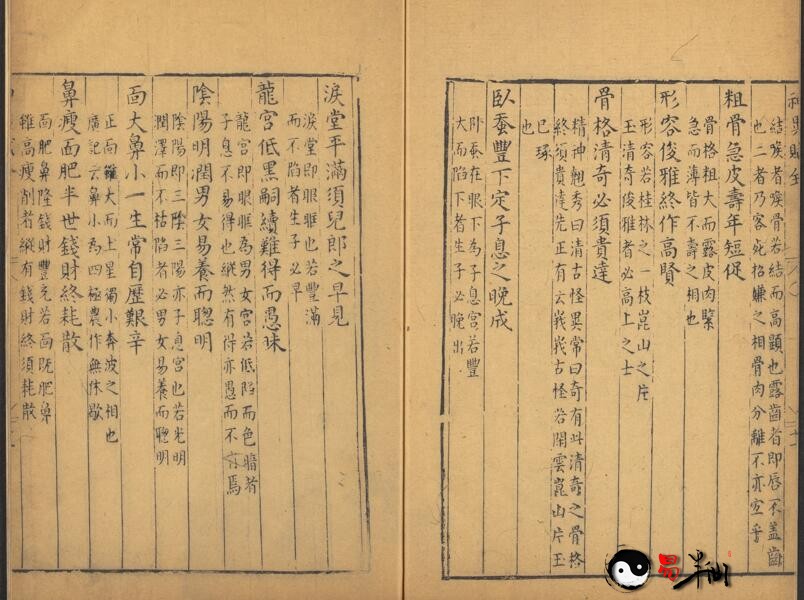 結喉者喉骨若結而高顯也露齒者即唇不盖齒
也二者乃客死招嫌之相骨肉分離不亦宜乎
粗骨急皮壽年短促
骨格粗大而露皮肉緊
急而薄皆不壽之相也
形容俊雅終作高賢
形容若桂林之一枝崑山之片
玉清奇俊雅者必高上之士
骨格清奇必須貴達
精神翹秀曰清古怪異常曰奇有此清奇之骨格
終須貴達先正有云峩峩古怪若閑雲崑山片玉
已琢
也
臥蚕豐下定子息之晚成
卧蚕在眼下為子息宮若豐
大而陷下者生子必晚出
淚堂平滿須兒郎之早見
淚堂即眼眶也若豐滿
而不陷者生子必早
龍宮低黑嗣續難得而愚昧
龍宮即眼眶為男女宮若低陷而色暗者
子息不易得也縱然有得亦愚而不肖焉
陰陽明潤男女易養而聰明
陰陽即三陰三陽亦子息宮也若光明
潤澤而不枯陷者必男女易養而聰明
面大鼻小一生常自歷艱辛
正面雖大而上星獨小奔波之相也
廣記云鼻小為四極農作無休歇
鼻瘦面肥半世錢財終耗散
面肥鼻隆錢財豐充若面既肥鼻
雖高瘦削者縱有錢財終須耗散
易半仙